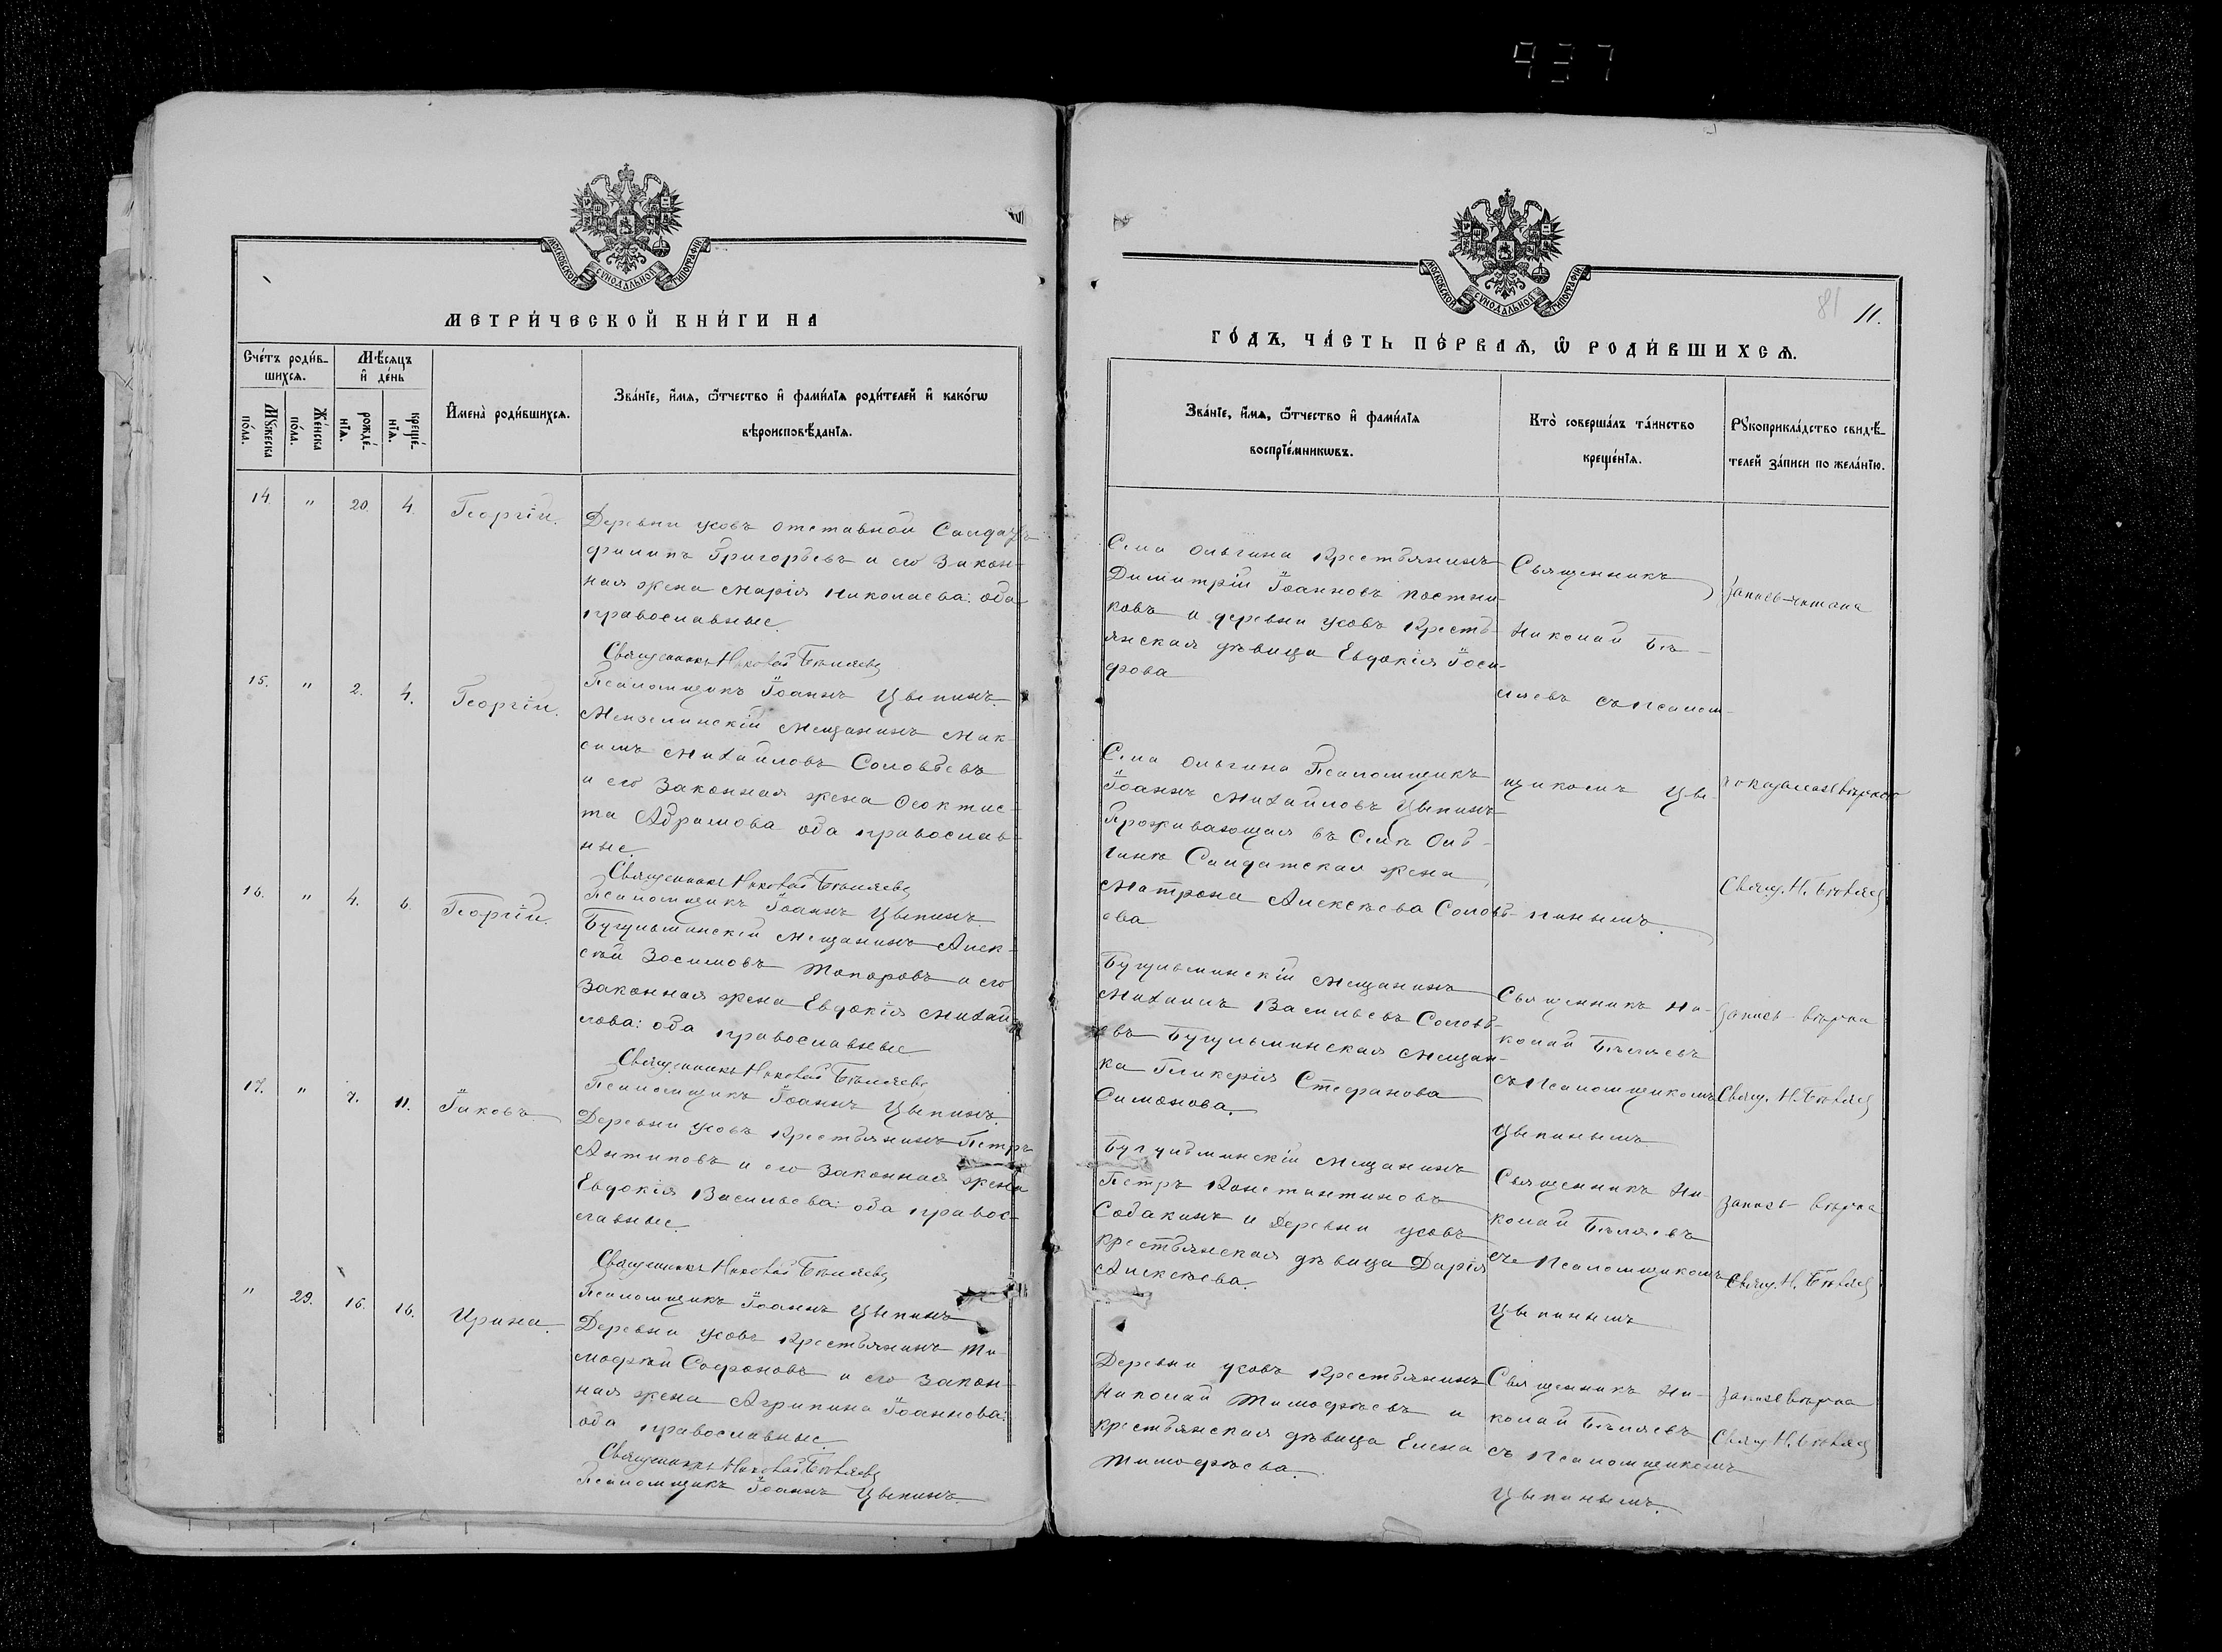 937
МОСКОВСКОЙ СѴНОДАЛЬНОЙ ТИПОГРАФІИ
МЕТРИ́ЧЕСКОЙ КНИ́ГИ НА
Счéтъ роди́в-
шихся.
Мѣ́сяцъ
и҆ де́нь
Мꙋ́жеска
по́ла.
Же́нска
по́ла.
рожде́-
нїя.
креще́-
нїя.
И҆мена̀ роди́вшихся.
Зва́нїе, и҆́мя, ѻ҆́тчество и҆ фами́лїя роди́телей и҆ како́гѡ
вѣроисповѣ́данїя.
14. " 20. 4. Георгій.
Деревни Усовъ отставной Солдатъ
Филипъ Григорьевъ и его Закон-
ная жена Марія Николаева: оба
православные.
Священникъ Николай Бѣляевъ
Псаломщикъ Іоаннъ Цѣпинъ.
15. " 2. 4. Георгій.
Мензелинскій Мещанинъ Мак-
симъ Михайловъ Соловьевъ
и его Законная жена Ѳеоктис-
та Абрамова оба православ-
ные.
Священникъ Николай Бѣляевъ
Псаломщикъ Іоаннъ Цѣпинъ.
16. " 4. 6. Георгій.
Бугульминскій Мещанинъ Алек-
сѣй Зосимовъ Топоровъ и его
Законная жена Евдокія Михай-
лова: оба православные
Священникъ Николай Бѣляевъ
Псаломщикъ Іоаннъ Цѣпинъ.
17. " 7. 11. Іаковъ.
Деревни Усовъ Крестьянинъ Петръ
Антиповъ и его Законная жена
Евдокія Васильева: оба правос-
лавные.
Священникъ Николай Бѣляевъ
Псаломщикъ Іоаннъ Цѣпинъ
" 29. 16. 16. Ирина.
Деревни Усовъ Крестьянинъ Ти-
мофѣй Софроновъ и его Закон-
ная жена Агрипина Іоаннова:
оба православные.
Священникъ Николай Бѣляевъ
Псаломщикъ Іоаннъ Цѣпинъ.
МОСКОВСКОЙ СѴНОДАЛЬНОЙ ТИПОГРАФІИ
81 11.
ГО́ДЪ, ЧА́СТЬ ПЕ́РВАЯ, Ѡ҆ РОДИ́ВШИХСЯ.
Зва́нїе, и҆́мя, ѻ҆́тчество и҆ фами́лїя
воспрїе́мникѡвъ.
Кто̀ соверша́лъ та́инство
креще́нїя.
Рꙋкоприкла́дство свидѣ́-
телей за́писи по жела́нїю.
Села Ольгина Крестьянинъ
Димитрій Іоанновъ Постни-
ковъ и деревни Усовъ Кресть-
янская дѣвица Евдокія Іоси-
фова
Священникъ
Николай Бѣ-
ляевъ съ Псалом-
щикомъ Цѣ-
пинымъ.
Села Ольгина Псаломщикъ
Іоаннъ Михайловъ Цѣпинъ
Проживающая въ Селѣ Оль-
гинѣ Солдатская жена
Матрона Алексѣева Соловь-
ева
Свящ. Н. Бѣляевъ
Бугульминскій Мещанинъ
Михаилъ Васильевъ Соловь-
евъ Бугульминская Мещан-
ка Гликерія Стефанова
Симонова.
Священникъ Ни-
колай Бѣляевъ
съ Псаломщикомъ
Цѣпинымъ
запись вѣрна
Свящ. Н. Бѣляевъ
Бугульминскій Мещанинъ
Петръ Константиновъ
Собакинъ и Деревни Усовъ
крестьянская дѣвица Дарія
Алексѣева.
Священникъ Ни-
колай Бѣляевъ
съ Псаломщикомъ
Цѣпинымъ
запись вѣрна
Свящ. Н. Бѣляевъ
Деревни Усовъ Крестьянинъ
Николай Тимофѣевъ и
крестьянская дѣвица Елена
Тимофѣева.
Священникъ Ни-
колай Бѣляевъ
съ Псаломщикомъ
Цѣпинымъ.
запись вѣрна
Свящ. Н. Бѣляевъ